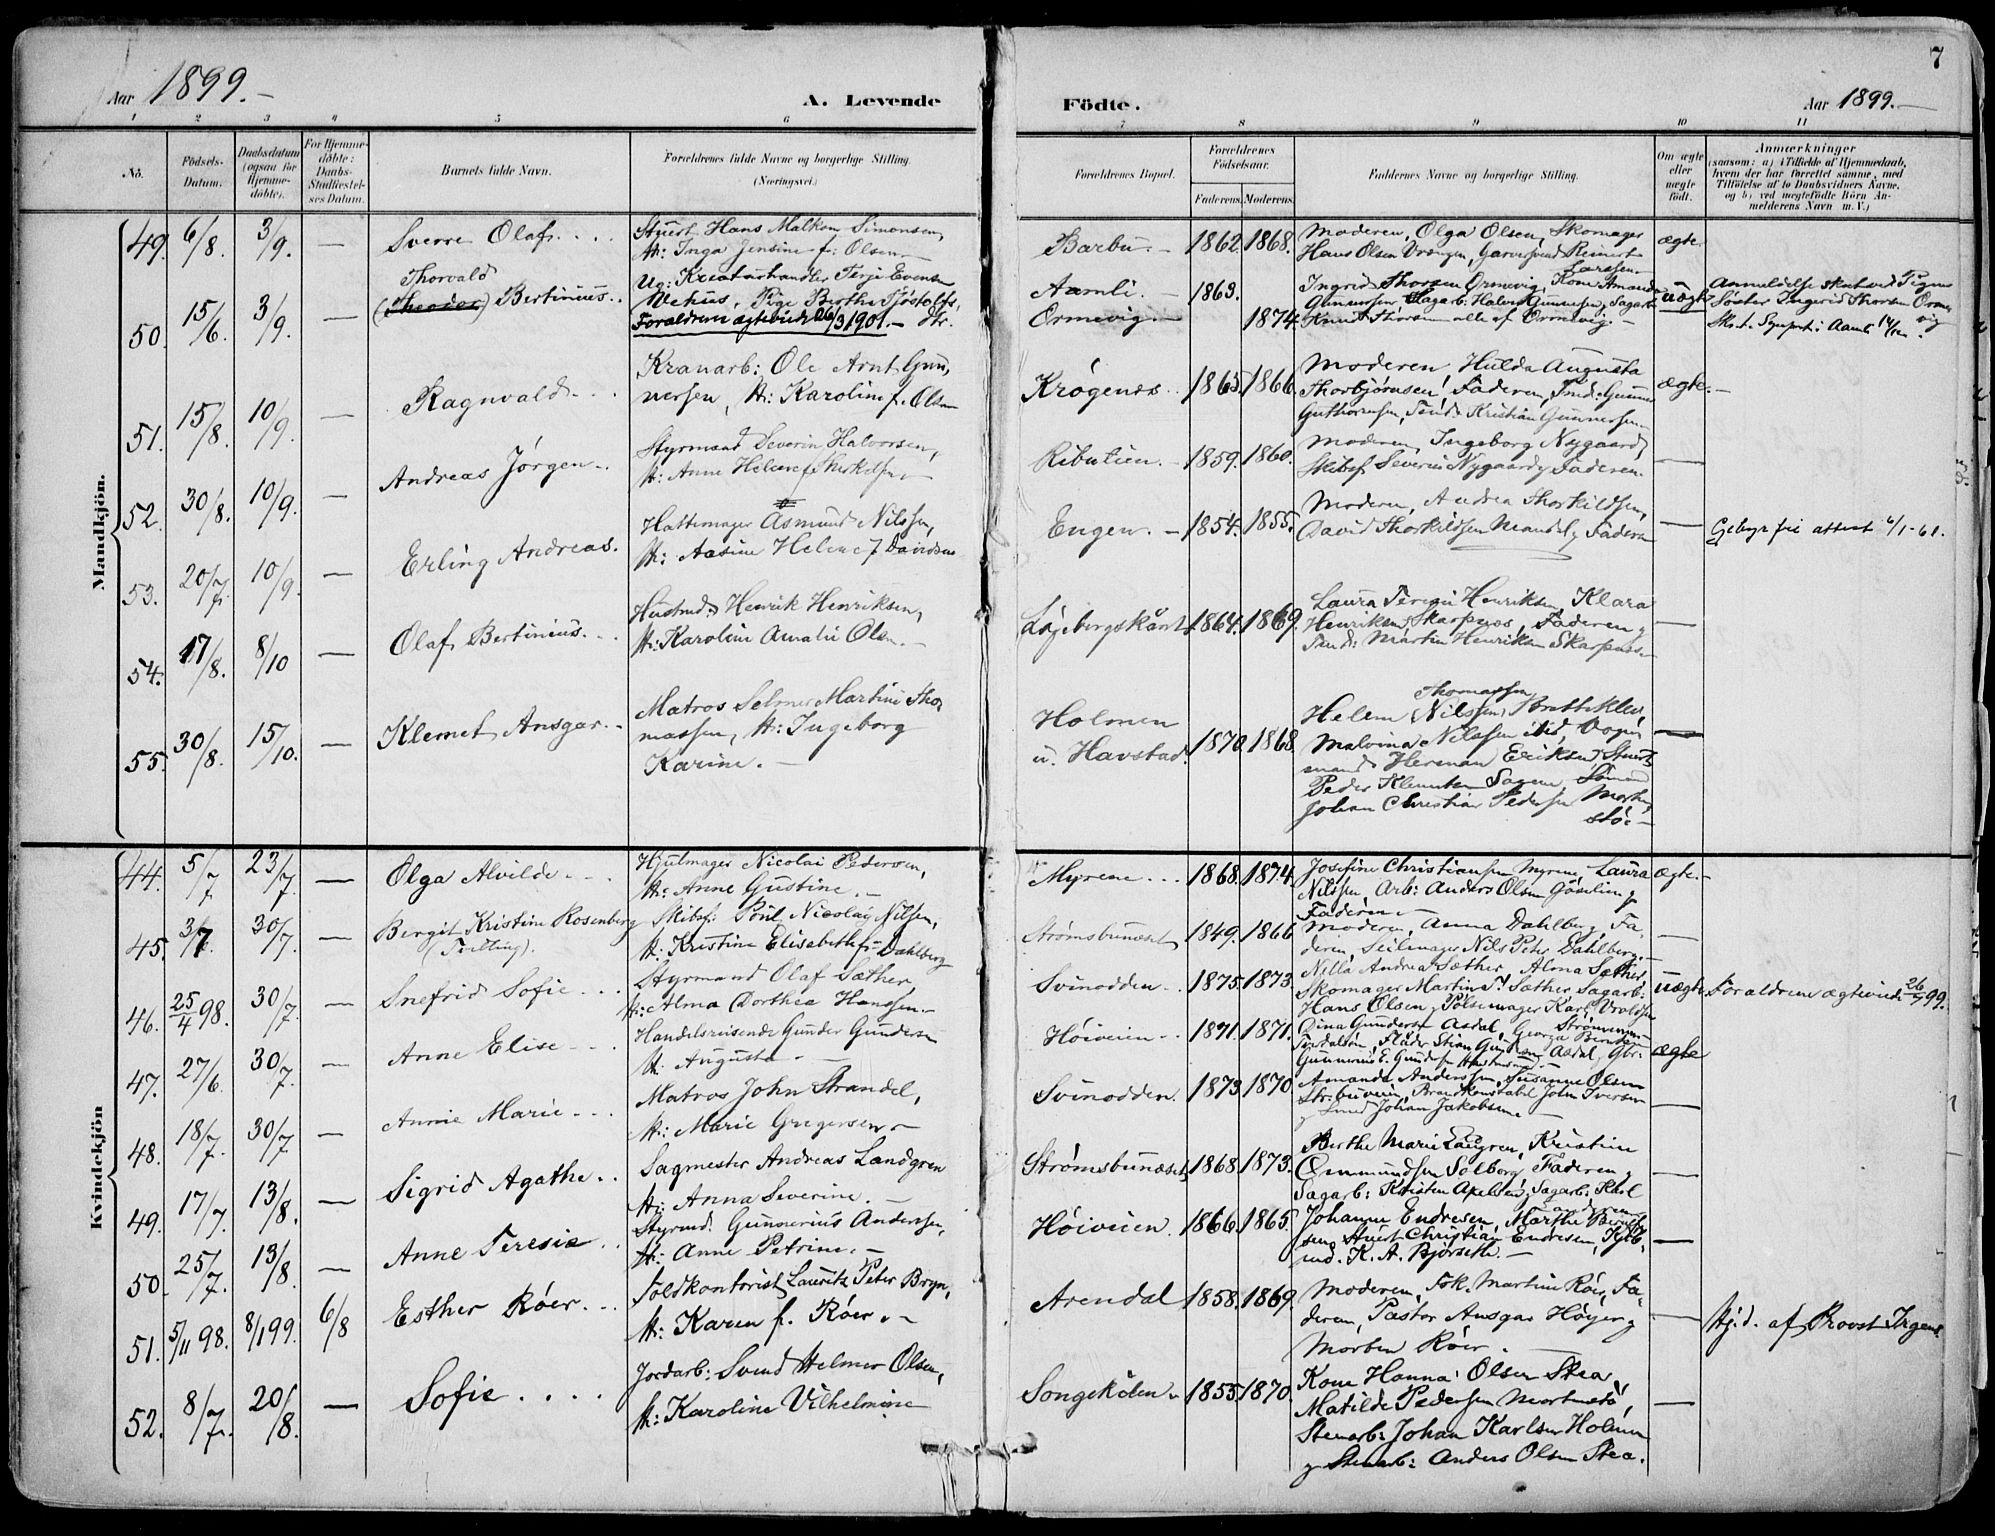 Aar 1899.-
A. Levende
Födte.
Aar 1899.-
7
1 2 3 4 5 6 7 8 9 10 11
No.
Födsels-Datum.
Daabsdatum (ogsaa for Hjemme-döbte).
For Hjemme-döbte: Daabs-Stadfæstel-ses Datum.
Barnets fulde Navn.
Forældrenes fulde Navne og borgerlige Stilling. (Næringsvei.)
Forældrenes Bopæl.
Forældrenes Födselsaar.
Faderens. Moderens.
Faddernes Navne og borgerlige Stilling.
Om ægte eller uægte födt.
Anmærkninger
(saasom: a) i Tilfælde af Hjemmedaab, hvem der har forrettet samme, med Tilföielse af to Daabsvidners Navne, og b) ved uægtefödte Börn An-melderens Navn m. V.)
Mandkjön.
49. 6/8 3/9. — Sverre Olaf. . . .
Stuert Hans Malkom Simonsen,
H: Inga Jensine f. Olsen
Barbu. - 1862. 1868.
Moderen, Olga Olsen, Skomager
Hans Olsen Vrengen, Garversvend Reinert
Larssen
ægte
50. 15/6. 3/9. — Thorvald
(Theodor) Bertinius. .
Ug: Kreaturhandler Terje Evensen
Vehus, Pige Berthe Tjøstolfs,
Forældrene ægteviede 26/3 1901. - dtr.
Aamli. - 1863.
Ormevig. - 1874.
Ingrid Thorsen Ormevig, Kone Amanda
Gunnersen Sagarb: Halvor Gunnersen, Sagarb:
Knut Thorsen alle af Ormevig. -
uægte
Anmeldelse skeet ved Pigens
Søster Ingrid Thorsen Orme
vig
51. 15/8. 10/9. — Ragnvald. . . .
Kranarb: Ole Arnt Gun,
nersen, H: Karoline f. Olsen
Krøgenes. . 1865. 1866.
Moderen, Hulda Augusta
Thorbjørnsen, Faderen, Smd: Gunner
Guthormsen, Smd: Kristian Gunnersen
ægte. -
52. 30/8. 10/9. — Andreas Jørgen. .
Styrmand Severin Halvorsen,
H: Anne Helene f. Therkelsen
Ributien. - 1859. 1860.
Moderen, Ingeborg Nygaard,
Skibsf. Severin Nygaard, Faderen. —
53. 20/7. 10/9. — Erling Andreas.
Hattemager Asmund Nilssen,
H: Aasine Helene f Davidsen
Engen. - 1854. 1855.
Moderen, Andrea Thorkildsen,
David Thorkildsen Mandal, Faderen —
Gebyrfri attest 6/1-61.
54. 17/8. 8/10 — Olaf Bertinius. . .
Husmd: Henrik Henriksen,
H: Karoline Amalie Olsen. -
Løgebergskåret 1864. 1869.
Laura Teresie Henriksen, Klara
Henriksen, Skarpnes, Faderen,
Smd: Martin Henriksen Skarpnes. —
55. 30/8. 15/10. — Klemet Ansgar. .
Matros Selmer Martin Tho
massen, H: Ingeborg
Karine. -
Holmen
u. Havstad. 1870. 1868.
Thomassen
Helene Nilssen
Malvina Nilssen ibid, Vogn
mand Herman Eriksen, Stuert
Peder Klemetsen Sagene, Sömand
Johan Christian Pedersen Morten
stö. - —
Kvindekjön
44. 5/7 23/7. — Olga Alvilde. . . .
Hjulmager Nicolai Pedersen,
H: Anne Gustine. -
Myrene. . . 1868. 1874.
Josefine Christiansen Myrene, Laura
Nilssen, Arb: Anders Olsen
Faderen
ægte. -
45. 3/7. 30/7. — Bergit Kristine Rosenberg
(Tvilling).
Skibsf: Poul Nicolay Nilsen,
H. Kristine Elisabeth f. Dahlberg
Strømsbunæset 1849. 1866
Moderen, Anna Dahlberg, Fa-
deren, Seilmager Nils Peter Dahlberg. —
46. 25/4 98. 30/7. — Snefrid Sofie. . . .
Styrmand Olaf Sæther,
H: Alma Dorthea Hanssen. -
Svinodden. . 1875. 1873.
Nilla Andrea Sæther, Alma Sæther,
Skomager Martin Sæther, Sagarb:
Hans Olsen, Pølsemager Karl Vraldsen
uægte
Forældrene ægteviede 26/7 99.
47. 27/6. 30/7. — Anne Elise. . .
Handelsreisende Gunder Gundersen
H: Augusta. -
Høiveien. . 1871. 1871.
Dina Gundersen Asdal, Georga Berntsen
Strømmen
ægte
48. 18/7. 30/7. — Annie Marie. . .
Matros John Strandel,
H: Marie Gregersen. -
Svinodden. 1873. 1870.
Amanda Anderssen, Susanne Olsen
Strbuveien, Brandkonstabel John Iversen
Smed Johan Jakobsen. —
49. 17/7. 13/8. — Sigrid Agathe. .
Sagmester Andreas Landgren
H: Anna Severine. -
Strømsbunæset, 1868. 1873.
Berthe Marie Laugren, Kristine
Ommundsen Solborg, Faderen,
Sagarb: Kristen Apelsen, Sagarb: Karl
Landgren —
50. 25/7. 13/8. — Anne Teresie. .
Styrmd: Gunnerius Andersen,
H: Anne Petrine. -
Høiveien. 1866. 1865.
Johanne Endresen, Marthe Bernt
sen, Stuert Christian Endresen,
md. K. A. Bjørseth. - —
51. 5/11 98. 8/1 99. 6/8 Esther Röer. . .
Toldkontorist Lauritz Peter Bryn,
H: Karen f. Röer. -
Arendal 1858. 1869.
Moderen, Frk. Martine Röer, Fa-
deren, Pastor Ansgar Höyer,
Morten Röer. - —
Hj. d. af Provst Irgens.
52. 8/7. 20/8. — Sofie . . . .
Jordarb: Svend Helmer Olsen,
H: Karoline Vilhelmine
Songekölen. 1855. 1870.
Kone Hanna Olsen Stea,
Matilde Pedersen Mortenstö,
Stenarb: Johan Karlsen Holmen
y Stenarb: Anders Olsen Stea. —